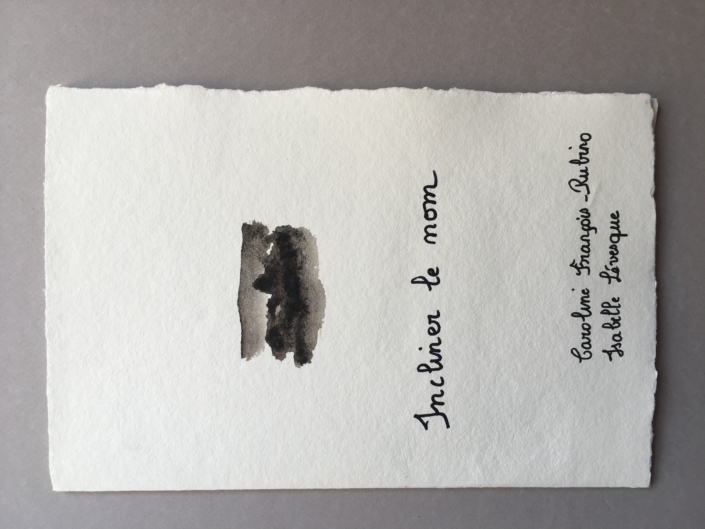 Incliner le nom
Caroline François-Rubino
Isabelle Lévesque